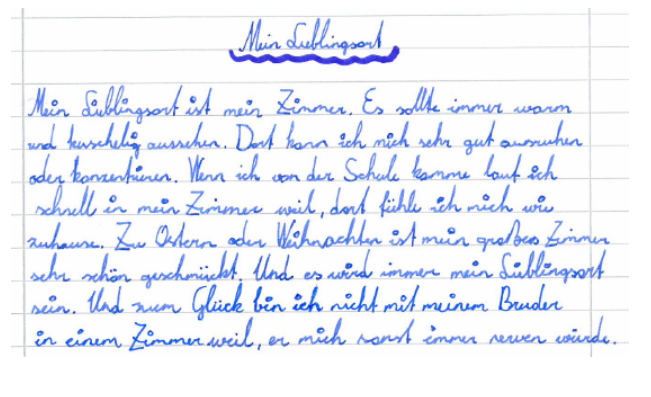 Mein Lieblingsort
Mein Lieblingsort ist mein Zimmer. Es sollte immer warm
und kuschelig aussehen. Dort kann ich mich sehr gut ausruhen
oder konzentrieren. Wenn ich von der Schule komme lauf ich
schnell in mein Zimmer weil, dort fühle ich mich wie
zuhause. Zu Ostern oder Weihnachten ist mein großes Zimmer
sehr schön geschmückt. Und es wird immer mein Lieblingsort
sein. Und zum Glück bin ich nicht mit meinem Bruder
in einem Zimmer weil, er mich sonst immer nerven würde.